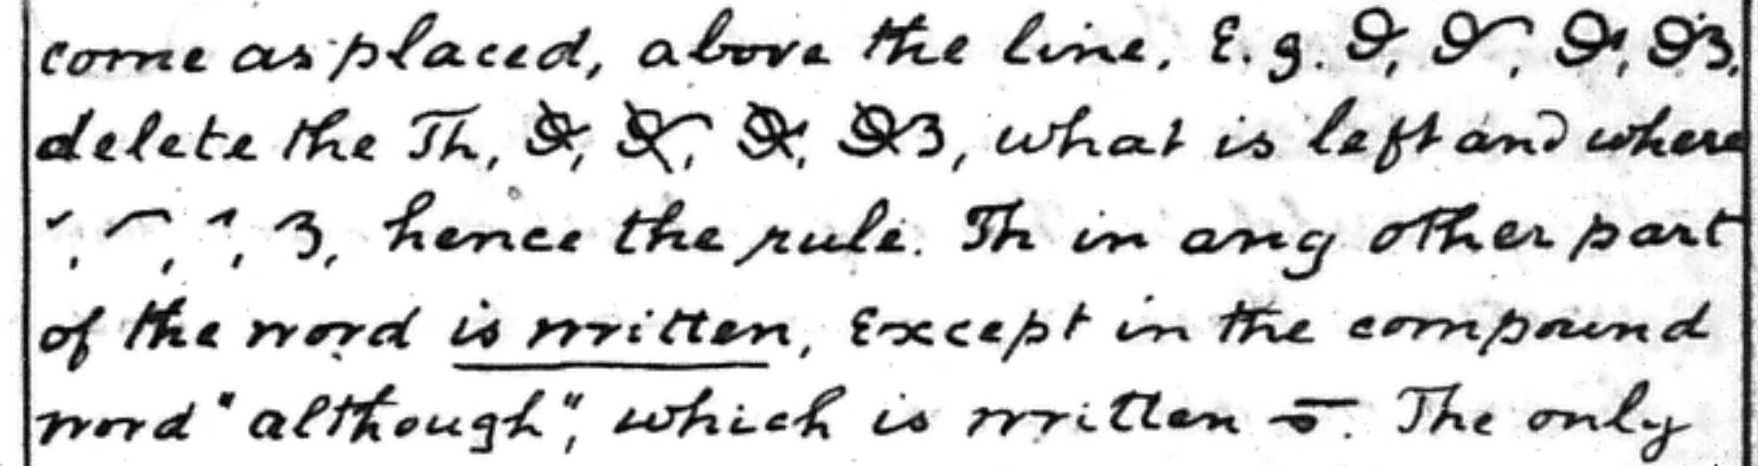 come as placed, above the line. E.g.
delete the Th, what is left and where
hence the rule. Th in any other part
of the word is written, Except in the compound
word "although", which is written . The only